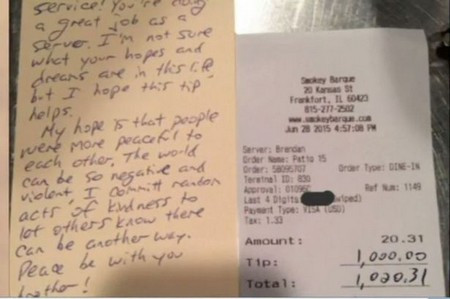 service! You're doing
a great job as a
server. I'm not sure
what your hopes and
dreams are in this life
but I hope this tip
helps.
My hope is that people
were more peaceful to
each other. The world
can be so negative and
violent. I committ random
acts of kindness to
let others know there
can be another way.
Peace be with you
brother!
Smokey Barque
20 Kansas St
Frankfort, IL 60423
815-277-2502
www.smokeybarque.com
Jun 28 2015 4:57:08 PM
Server: Brendan
Order Name: Patio 15
Order: 58095707 Order Type: DINE-IN
Terminal ID: 830
Approval: 01096C Ref Num: 1149
Last 4 Digits
Payment Type: VISA (USD)
Tax: 1.33
Amount: 20.31
Tip: 1,000.00
Total: 1,020.31